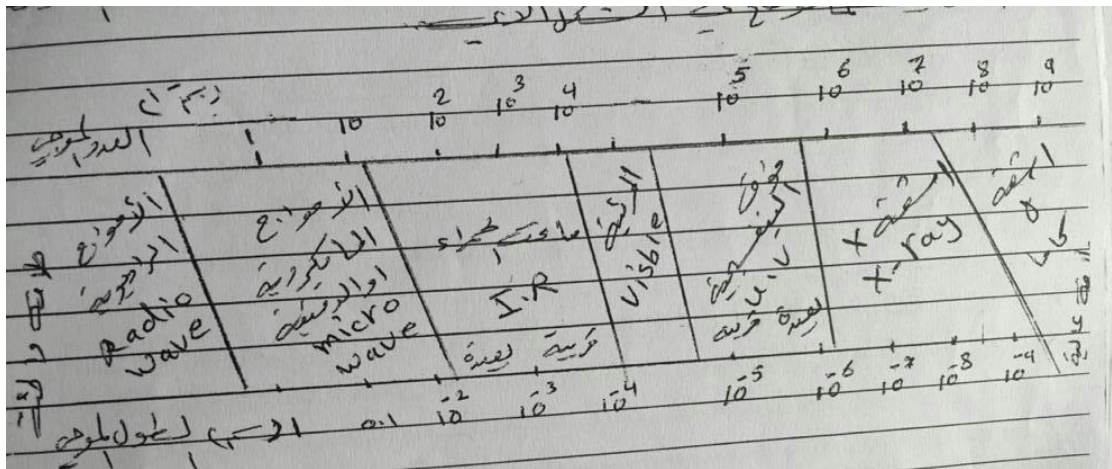 العدد الموجي 1 10 10² 10³ 10⁴ 10⁵ 10⁶ 10⁷ 10⁸ 10⁹
الأمواج الراديوية Radio wave
الأمواج المايكروية او الدقيقة micro wave
ماتحت الحمراء I.R بعيدة قريبة
المرئية Visble
فوق البنفسجية U.V قريبة بعيدة
أشعة X X-ray
أشعة γ
طاقة عالية
الطول الموجي 0.1 10⁻² 10⁻³ 10⁻⁴ 10⁻⁵ 10⁻⁶ 10⁻⁷ 10⁻⁸ 10⁻⁹